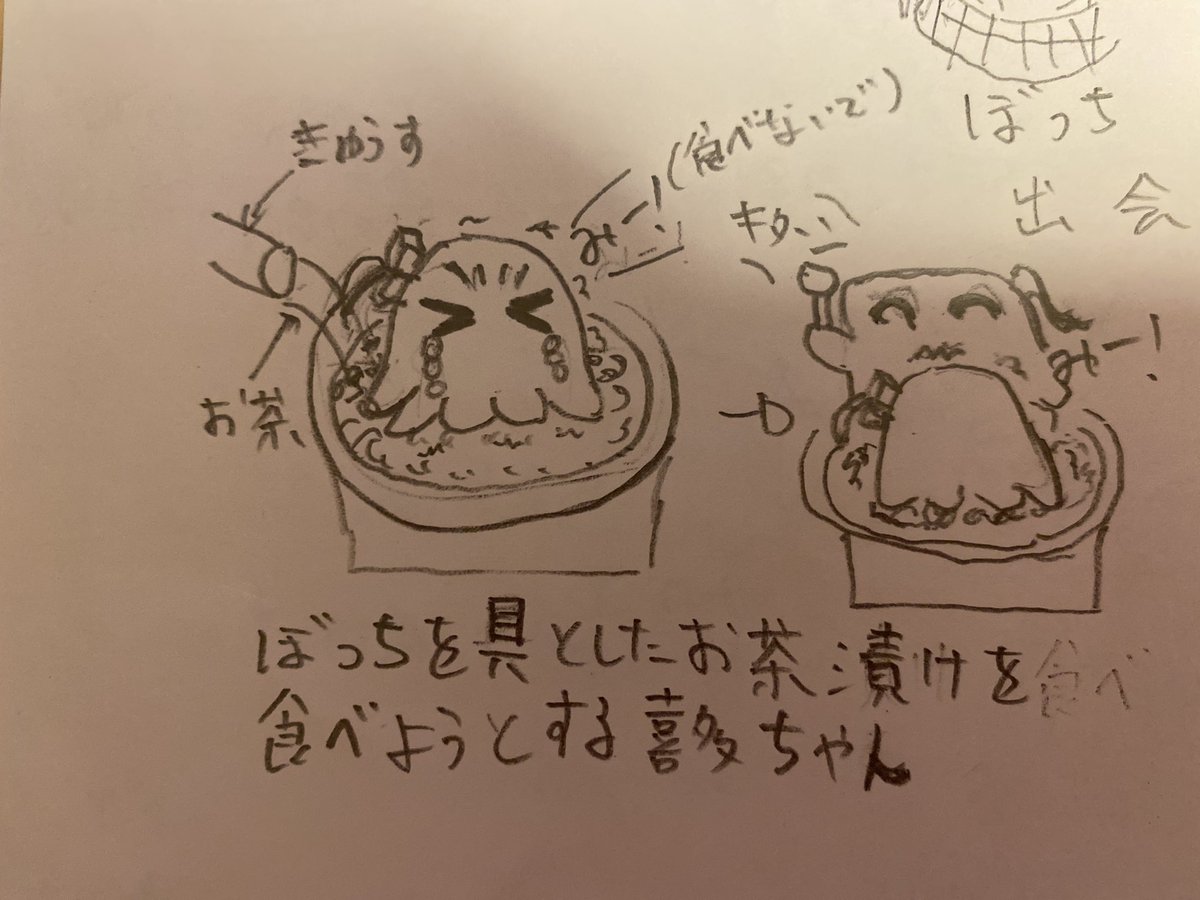 ぼっち
出会
きゅうす
みー!(食べないで)
キターン
お茶
みー!
ぼっちを具としたお茶漬けを食べ
食べようとする喜多ちゃん